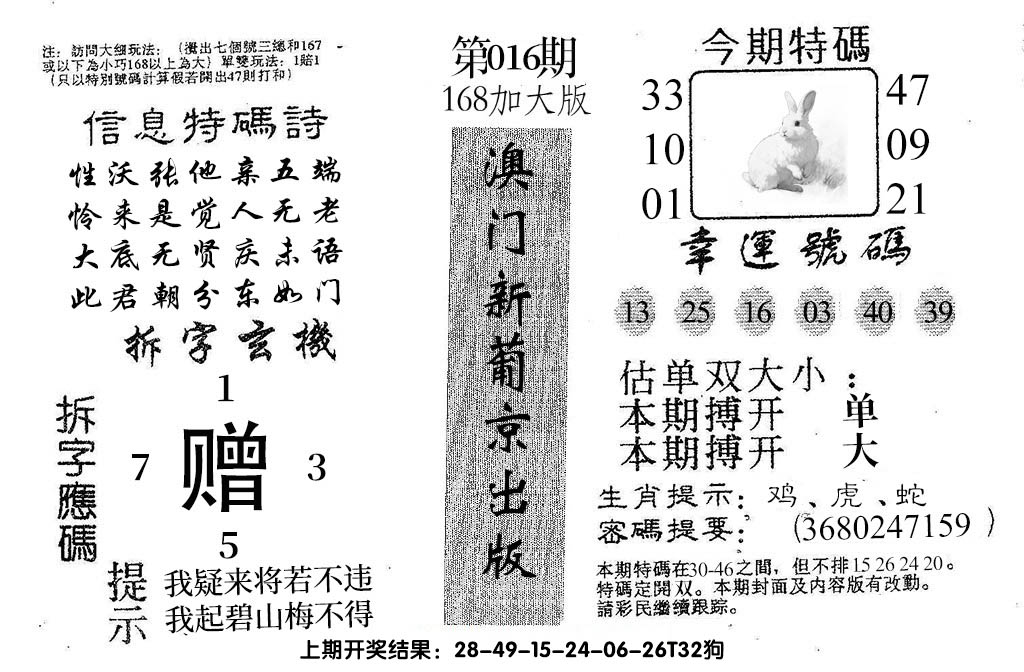 注：訪問大细玩法：（攪出七個號三總和167
或以下為小巧168以上為大）單雙玩法：1賠1
（只以特別號碼計算假若開出47則打和）
信息特碼詩
性沃张他亲五端
怜来是觉人无老
大底无贤庆未语
此君朝分东如门
拆字玄機
拆字應碼
1
7 赠 3
5
提示
我疑来将若不违
我起碧山梅不得
第016期
168加大版
澳门新葡京出版
今期特碼
33 47
10 09
01 21
幸運號碼
13 25 16 03 40 39
估单双大小：
本期搏开 单
本期搏开 大
生肖提示：鸡、虎、蛇
密碼提要：（3680247159）
本期特碼在30-46之間，但不排15 26 24 20。
特碼定開双。本期封面及内容版有改動。
請彩民繼續跟踪。
上期开奖结果：28-49-15-24-06-26T32狗